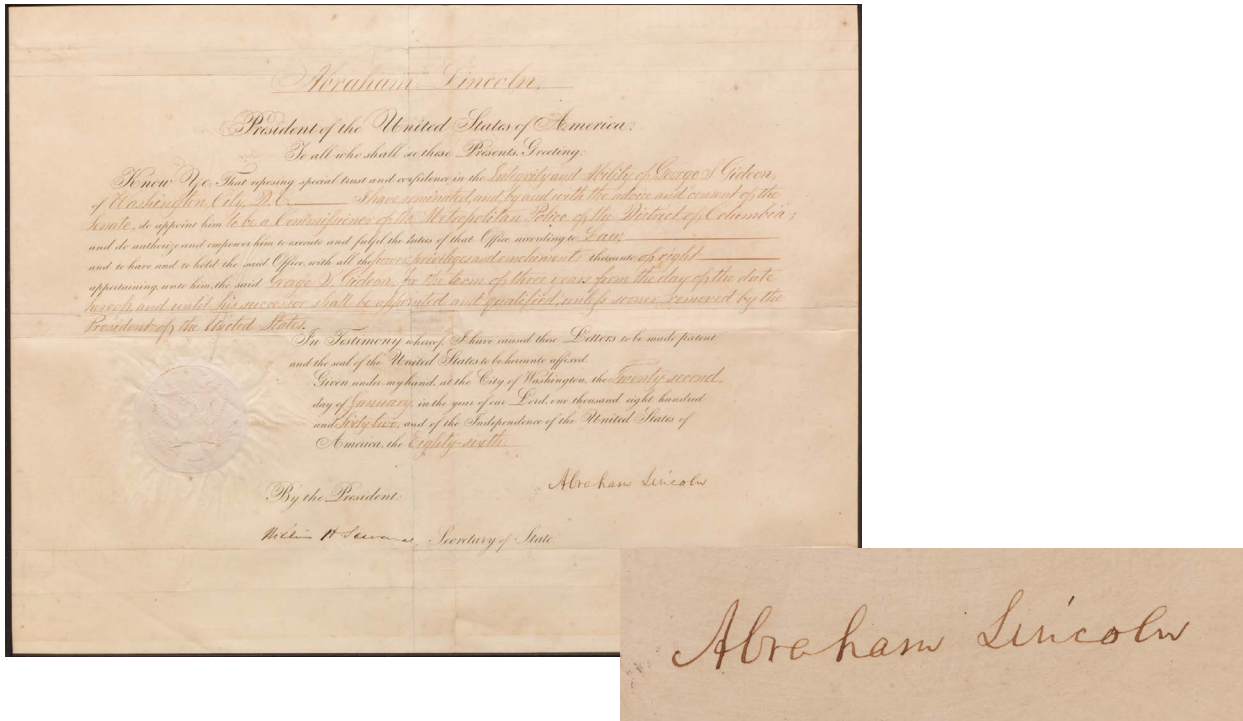 Abraham Lincoln.
President of the United States of America.
To all who shall see these Presents, Greeting:
Know Ye, That reposing special trust and confidence in the Integrity and Ability of George S. Gideon,
of Washington City, D.C. I have nominated, and by and with the advice and consent of the
Senate, do appoint him to be a Commissioner of the Metropolitan Police of the District of Columbia;
and do authorize and empower him to execute and fulfil the duties of that Office according to Law,
and to have and to hold the said Office, with all the powers, privileges and emoluments thereunto of right
appertaining, unto him, the said George S. Gideon, for the term of three years from the day of the date
hereof, and until his successor shall be appointed and qualified, unless sooner removed by the
President of the United States.
In Testimony whereof, I have caused these Letters to be made patent
and the seal of the United States to be hereunto affixed.
Given under my hand, at the City of Washington, the Twenty second
day of January, in the year of our Lord, one thousand eight hundred
and Sixty-two, and of the Independence of the United States of
America, the Eighty-sixth.
Abraham Lincoln
By the President:
William H Seward, Secretary of State
Abraham Lincoln